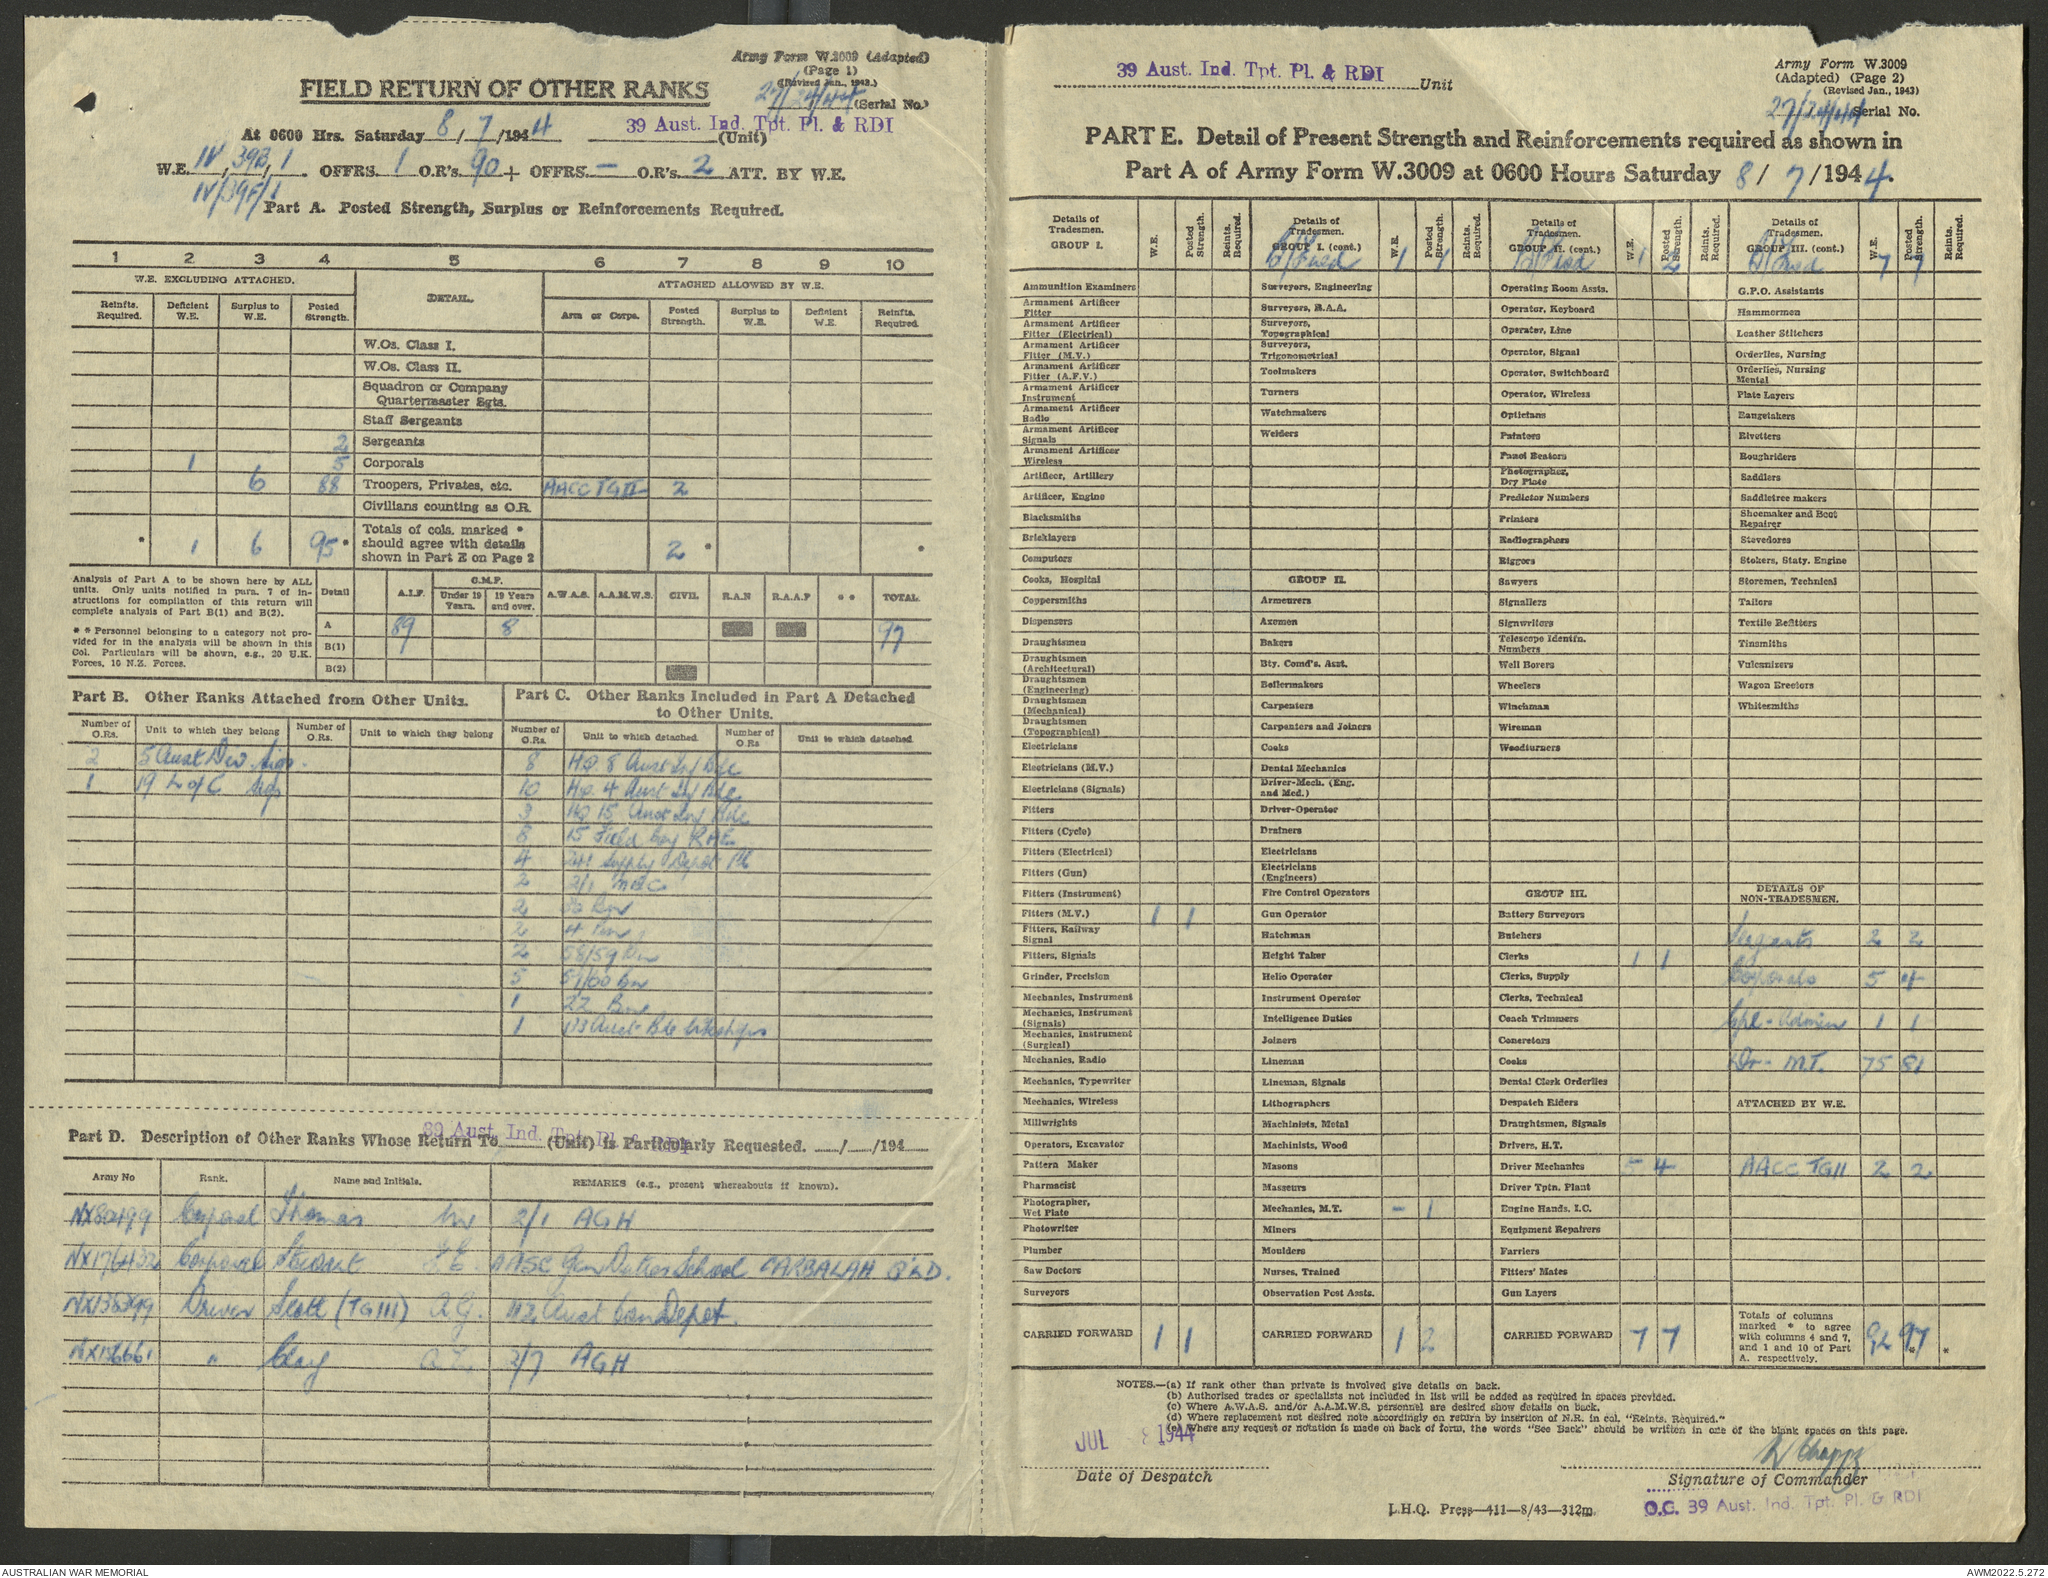 Army Form W.3009 (Adapted)
(Page 1)
(Revised Jan., 1943.)
FIELD RETURN OF OTHER RANKS
27/24/44 (Serial No.)
At 0600 Hrs. Saturday 8/7/1944 39 Aust. Ind. Tpt. Pl. & RDI (Unit)
W.E. IV/39B/1 . OFFRS. 1 O.R's. 90 + OFFRS. — O.R's. 2 ATT. BY W.E.
IV/39F/1
Part A. Posted Strength, Surplus or Reinforcements Required.
1 2 3 4 5 6 7 8 9 10
W.E. EXCLUDING ATTACHED. DETAIL. ATTACHED ALLOWED BY W.E.
Reinfts. Required. Deficient W.E. Surplus to W.E. Posted Strength. Arm or Corps. Posted Strength. Surplus to W.E. Deficient W.E. Reinfts. Required.
W.Os. Class I.
W.Os. Class II.
Squadron or Company
Quartermaster Sgts.
Staff Sergeants
2 Sergeants
1 5 Corporals
6 88 Troopers, Privates, etc. AACC TGII 2
Civilians counting as O.R.
Totals of cols. marked *
should agree with details
shown in Part E on Page 2
* 1 6 95* 2* *
Analysis of Part A to be shown here by ALL
units. Only units notified in para. 7 of in-
structions for compilation of this return will
complete analysis of Part B(1) and B(2).
* * Personnel belonging to a category not pro-
vided for in the analysis will be shown in this
Col. Particulars will be shown, e.g., 20 U.K.
Forces, 10 N.Z. Forces.
Detail A.I.F. C.M.F. Under 19 Years. 19 Years and over. A.W.A.S. A.A.M.W.S. CIVIL R.A.N R.A.A.F * * TOTAL
A 89 8 97
B(1)
B(2)
Part B. Other Ranks Attached from Other Units.
Number of O.Rs. Unit to which they belong Number of O.Rs. Unit to which they belong
2 5 Aust Div Sigs.
1 19 L of C Sigs
Part C. Other Ranks Included in Part A Detached
to Other Units.
Number of O.Rs. Unit to which detached. Number of O.Rs Unit to which detached
8 HQ. 8 Aust Inf Bde
10 HQ. 4 Aust Inf Bde
3 HQ 15 Aust Inf Bde
8 15 Field Coy RAE
4 241 Supply Depot Pl
2 2/1
2 30 Bn
2 4 Bn
2 58/59 Bn
5 57/60 Bn
1 22 Bn
1 Aust Bde Workshops
Part D. Description of Other Ranks Whose Return To 39 Aust. Ind. Tpt. Pl. & RDI (Unit) is Particularly Requested. / /194
Army No Rank. Name and Initials. REMARKS (e.g., present whereabouts if known).
Corporal Thomas 2/1 AGH
NX176432 Corporal Stewart AASC Gen Duties School CARBALAH Q'LD.
Driver Scott (TGIII) A.G. 112 Aust Con Depot.
" 2/7 AGH
39 Aust. Ind. Tpt. Pl. & RDI Unit
Army Form W.3009
(Adapted) (Page 2)
(Revised Jan., 1943)
27/24/44 Serial No.
PART E. Detail of Present Strength and Reinforcements required as shown in
Part A of Army Form W.3009 at 0600 Hours Saturday 8/7/1944.
Details of Tradesmen. GROUP I. W.E. Posted Strength. Reints. Required.
Ammunition Examiners
Armament Artificer Fitter
Armament Artificer Fitter (Electrical)
Armament Artificer Fitter (M.V.)
Armament Artificer Fitter (A.F.V.)
Armament Artificer Instrument
Armament Artificer Radio
Armament Artificer Signals
Armament Artificer Wireless
Artificer, Artillery
Artificer, Engine
Blacksmiths
Bricklayers
Computors
Cooks, Hospital
Coppersmiths
Dispensers
Draughtsmen
Draughtsmen (Architectural)
Draughtsmen (Engineering)
Draughtsmen (Mechanical)
Draughtsmen (Topographical)
Electricians
Electricians (M.V.)
Electricians (Signals)
Fitters
Fitters (Cycle)
Fitters (Electrical)
Fitters (Gun)
Fitters (Instrument)
Fitters (M.V.) 1 1
Fitters, Railway Signal
Fitters, Signals
Grinder, Precision
Mechanics, Instrument
Mechanics, Instrument (Signals)
Mechanics, Instrument (Surgical)
Mechanics, Radio
Mechanics, Typewriter
Mechanics, Wireless
Millwrights
Operators, Excavator
Pattern Maker
Pharmacist
Photographer, Wet Plate
Photowriter
Plumber
Saw Doctors
Surveyors
CARRIED FORWARD 1 1
Details of Tradesmen. GROUP I. (cont.) W.E. Posted Strength. Reints. Required.
B/Fwd 1 1
Surveyors, Engineering
Surveyors, R.A.A.
Surveyors, Topographical
Surveyors, Trigonometrical
Toolmakers
Turners
Watchmakers
Welders
GROUP II.
Armourers
Axemen
Bakers
Bty. Comd's. Asst.
Boilermakers
Carpenters
Carpenters and Joiners
Cooks
Dental Mechanics
Driver-Mech. (Eng. and Med.)
Driver-Operator
Drainers
Electricians
Electricians (Engineers)
Fire Control Operators
Gun Operator
Hatchman
Height Taker
Helio Operator
Instrument Operator
Intelligence Duties
Joiners
Lineman
Lineman, Signals
Lithographers
Machinists, Metal
Machinists, Wood
Masons
Masseurs
Mechanics, M.T. – 1
Miners
Moulders
Nurses, Trained
Observation Post Assts.
CARRIED FORWARD 1 2
Details of Tradesmen. GROUP II. (cont.) W.E. Posted Strength. Reints. Required.
B/Fwd 1 2
Operating Room Assts.
Operator, Keyboard
Operator, Line
Operator, Signal
Operator, Switchboard
Operator, Wireless
Opticians
Painters
Panel Beaters
Photographer, Dry Plate
Predictor Numbers
Printers
Radiographers
Riggers
Sawyers
Signallers
Signwriters
Telescope Identfn. Numbers
Well Borers
Wheelers
Winchman
Wireman
Woodturners
GROUP III.
Battery Surveyors
Butchers
Clerks 1 1
Clerks, Supply
Clerks, Technical
Coach Trimmers
Concretors
Cooks
Dental Clerk Orderlies
Despatch Riders
Draughtsmen, Signals
Drivers, H.T.
Driver Mechanics 5 4
Driver Tptn. Plant
Engine Hands, I.C.
Equipment Repairers
Farriers
Fitters' Mates
Gun Layers
CARRIED FORWARD 7 7
Details of Tradesmen. GROUP III. (cont.) W.E. Posted Strength. Reints. Required.
B/Fwd 7 7
G.P.O. Assistants
Hammermen
Leather Stitchers
Orderlies, Nursing
Orderlies, Nursing Mental
Plate Layers
Rangetakers
Rivetters
Roughriders
Saddlers
Saddletree makers
Shoemaker and Boot Repairer
Stevedores
Stokers, Staty. Engine
Storemen, Technical
Tailors
Textile Refitters
Tinsmiths
Vulcanizers
Wagon Erectors
Whitesmiths
DETAILS OF NON-TRADESMEN.
Sergeants 2 2
Corporals 5 4
Cpl - Admin 1 1
Dr - M.T. 75 81
ATTACHED BY W.E.
AACC TGII 2 2
Totals of columns
marked * to agree
with columns 4 and 7,
and 1 and 10 of Part
A. respectively. 92 97* *
NOTES.—(a) If rank other than private is involved give details on back.
(b) Authorised trades or specialists not included in list will be added as required in spaces provided.
(c) Where A.W.A.S. and/or A.A.M.W.S. personnel are desired show details on back.
(d) Where replacement not desired note accordingly on return by insertion of N.R. in col. "Reints. Required."
(e) Where any request or notation is made on back of form, the words "See Back" should be written in one of the blank spaces on this page.
JUL 8 1944
Date of Despatch
Signature of Commander
O.C. 39 Aust. Ind. Tpt. Pl. & RDI
L.H.Q. Press—411—8/43—312m.
AUSTRALIAN WAR MEMORIAL
AWM2022.5.272